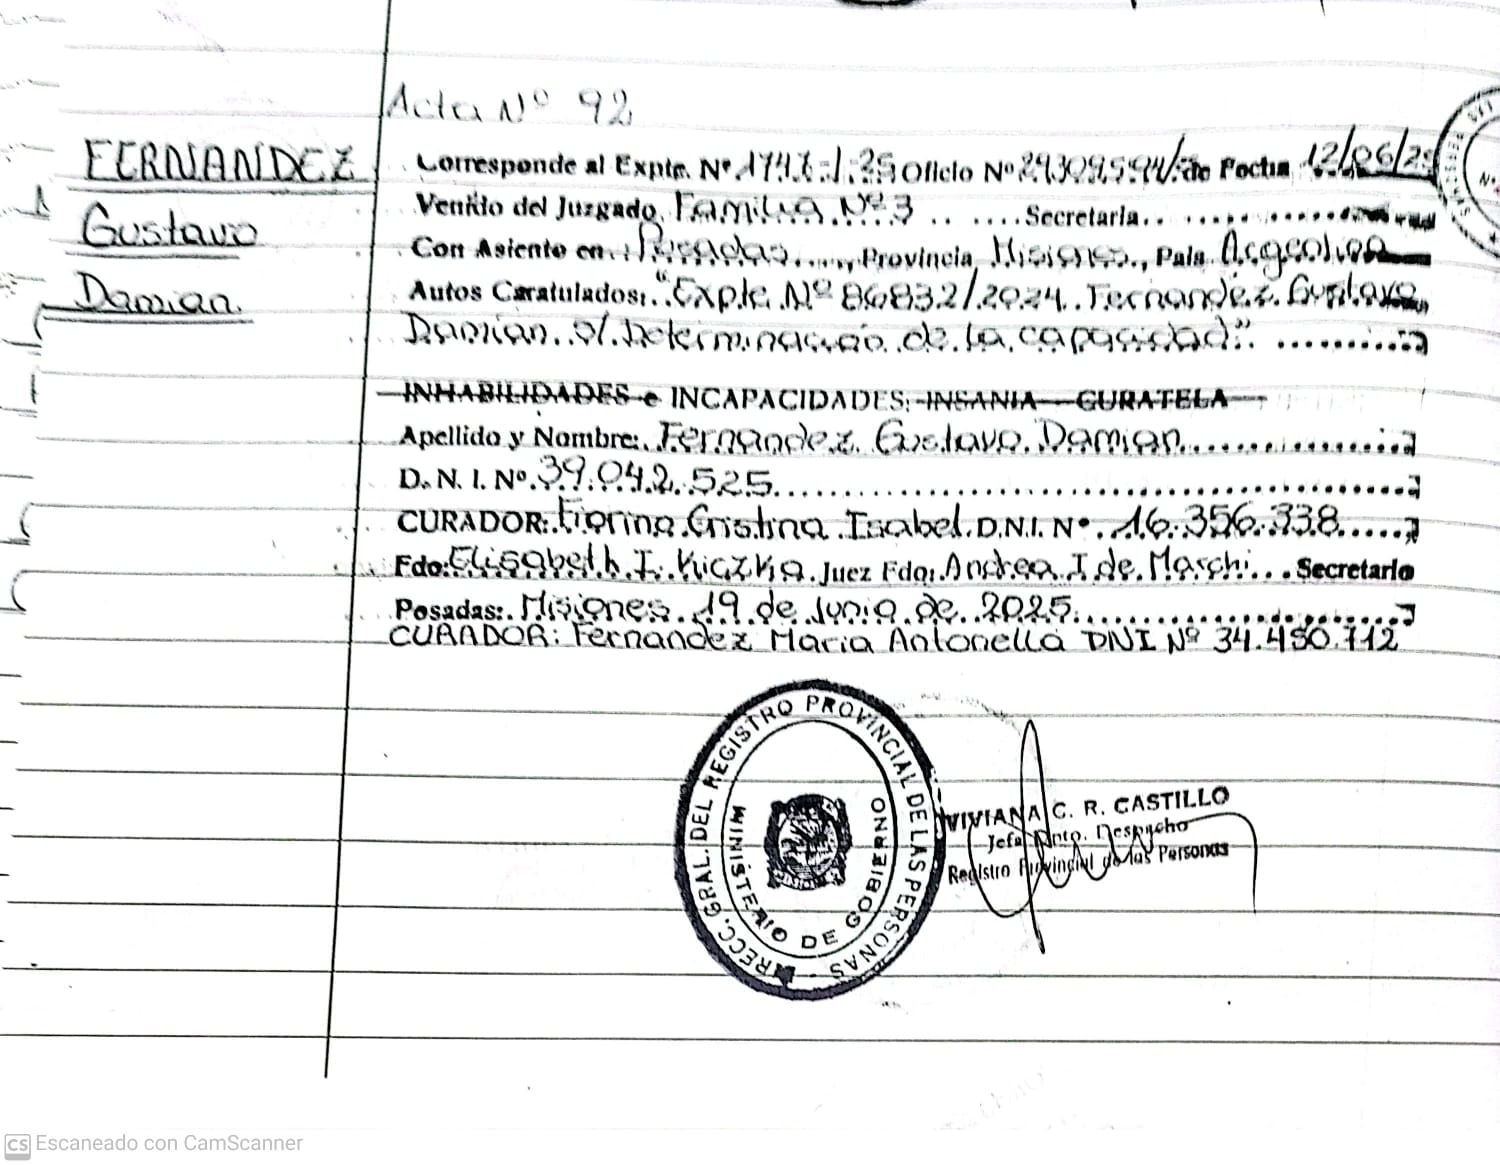 Acta Nº 92
FERNANDEZ
Gustavo
Damian.
Corresponde al Expte. Nº 1747-J-25 Oficio Nº 29309594/ de Fecha 12/06/25
Venido del Juzgado Familia Nº3 Secretaria
Con Asiento en Posadas, Provincia Misiones, Pais Argentina
Autos Caratulados: "Expte Nº 86832/2024 Fernandez Gustavo
Damian s/ Determinacion de la capacidad"
INHABILIDADES e INCAPACIDADES: INSANIA - CURATELA
Apellido y Nombre: Fernandez Gustavo Damian
D. N. I. Nº 39.042.525
CURADOR: Fiorina Cristina Isabel D.N.I. Nº 16.356.338
Fdo: Elisabeth I. Kiczka Juez Fdo: Andrea I de Marchi Secretario
Posadas: Misiones 19 de Junio de 2025
CURADOR: Fernandez Maria Antonella DNI Nº 34.450.712
DIRECC. GRAL. DEL REGISTRO PROVINCIAL DE LAS PERSONAS
MINISTERIO DE GOBIERNO
VIVIANA C. R. CASTILLO
Jefa Dpto. Despacho
Registro Provincial de las Personas
CS Escaneado con CamScanner